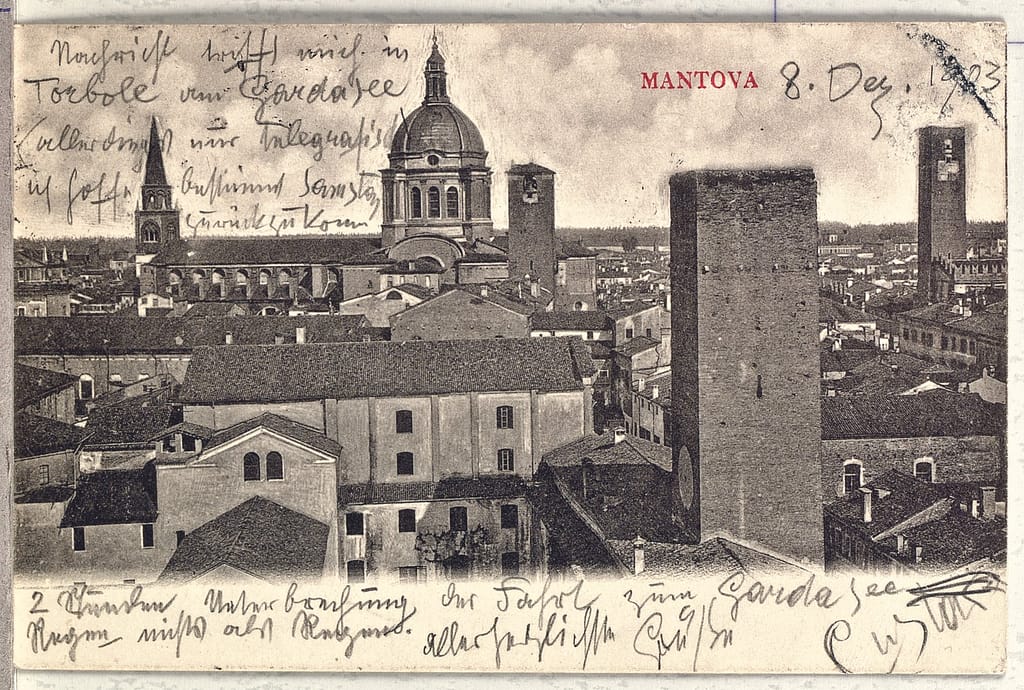 Nachricht trifft mich in
Torbole am Gardasee
(allerdings nur telegrafisch
ich hoffe bestimmt Samstag
zurückzukomm
MANTOVA 8. Dez. 1903
2 Stunden Unterbrechung der Fahrt zum Gardasee
Regen nichts als Regen.
allerherzlichste Grüße